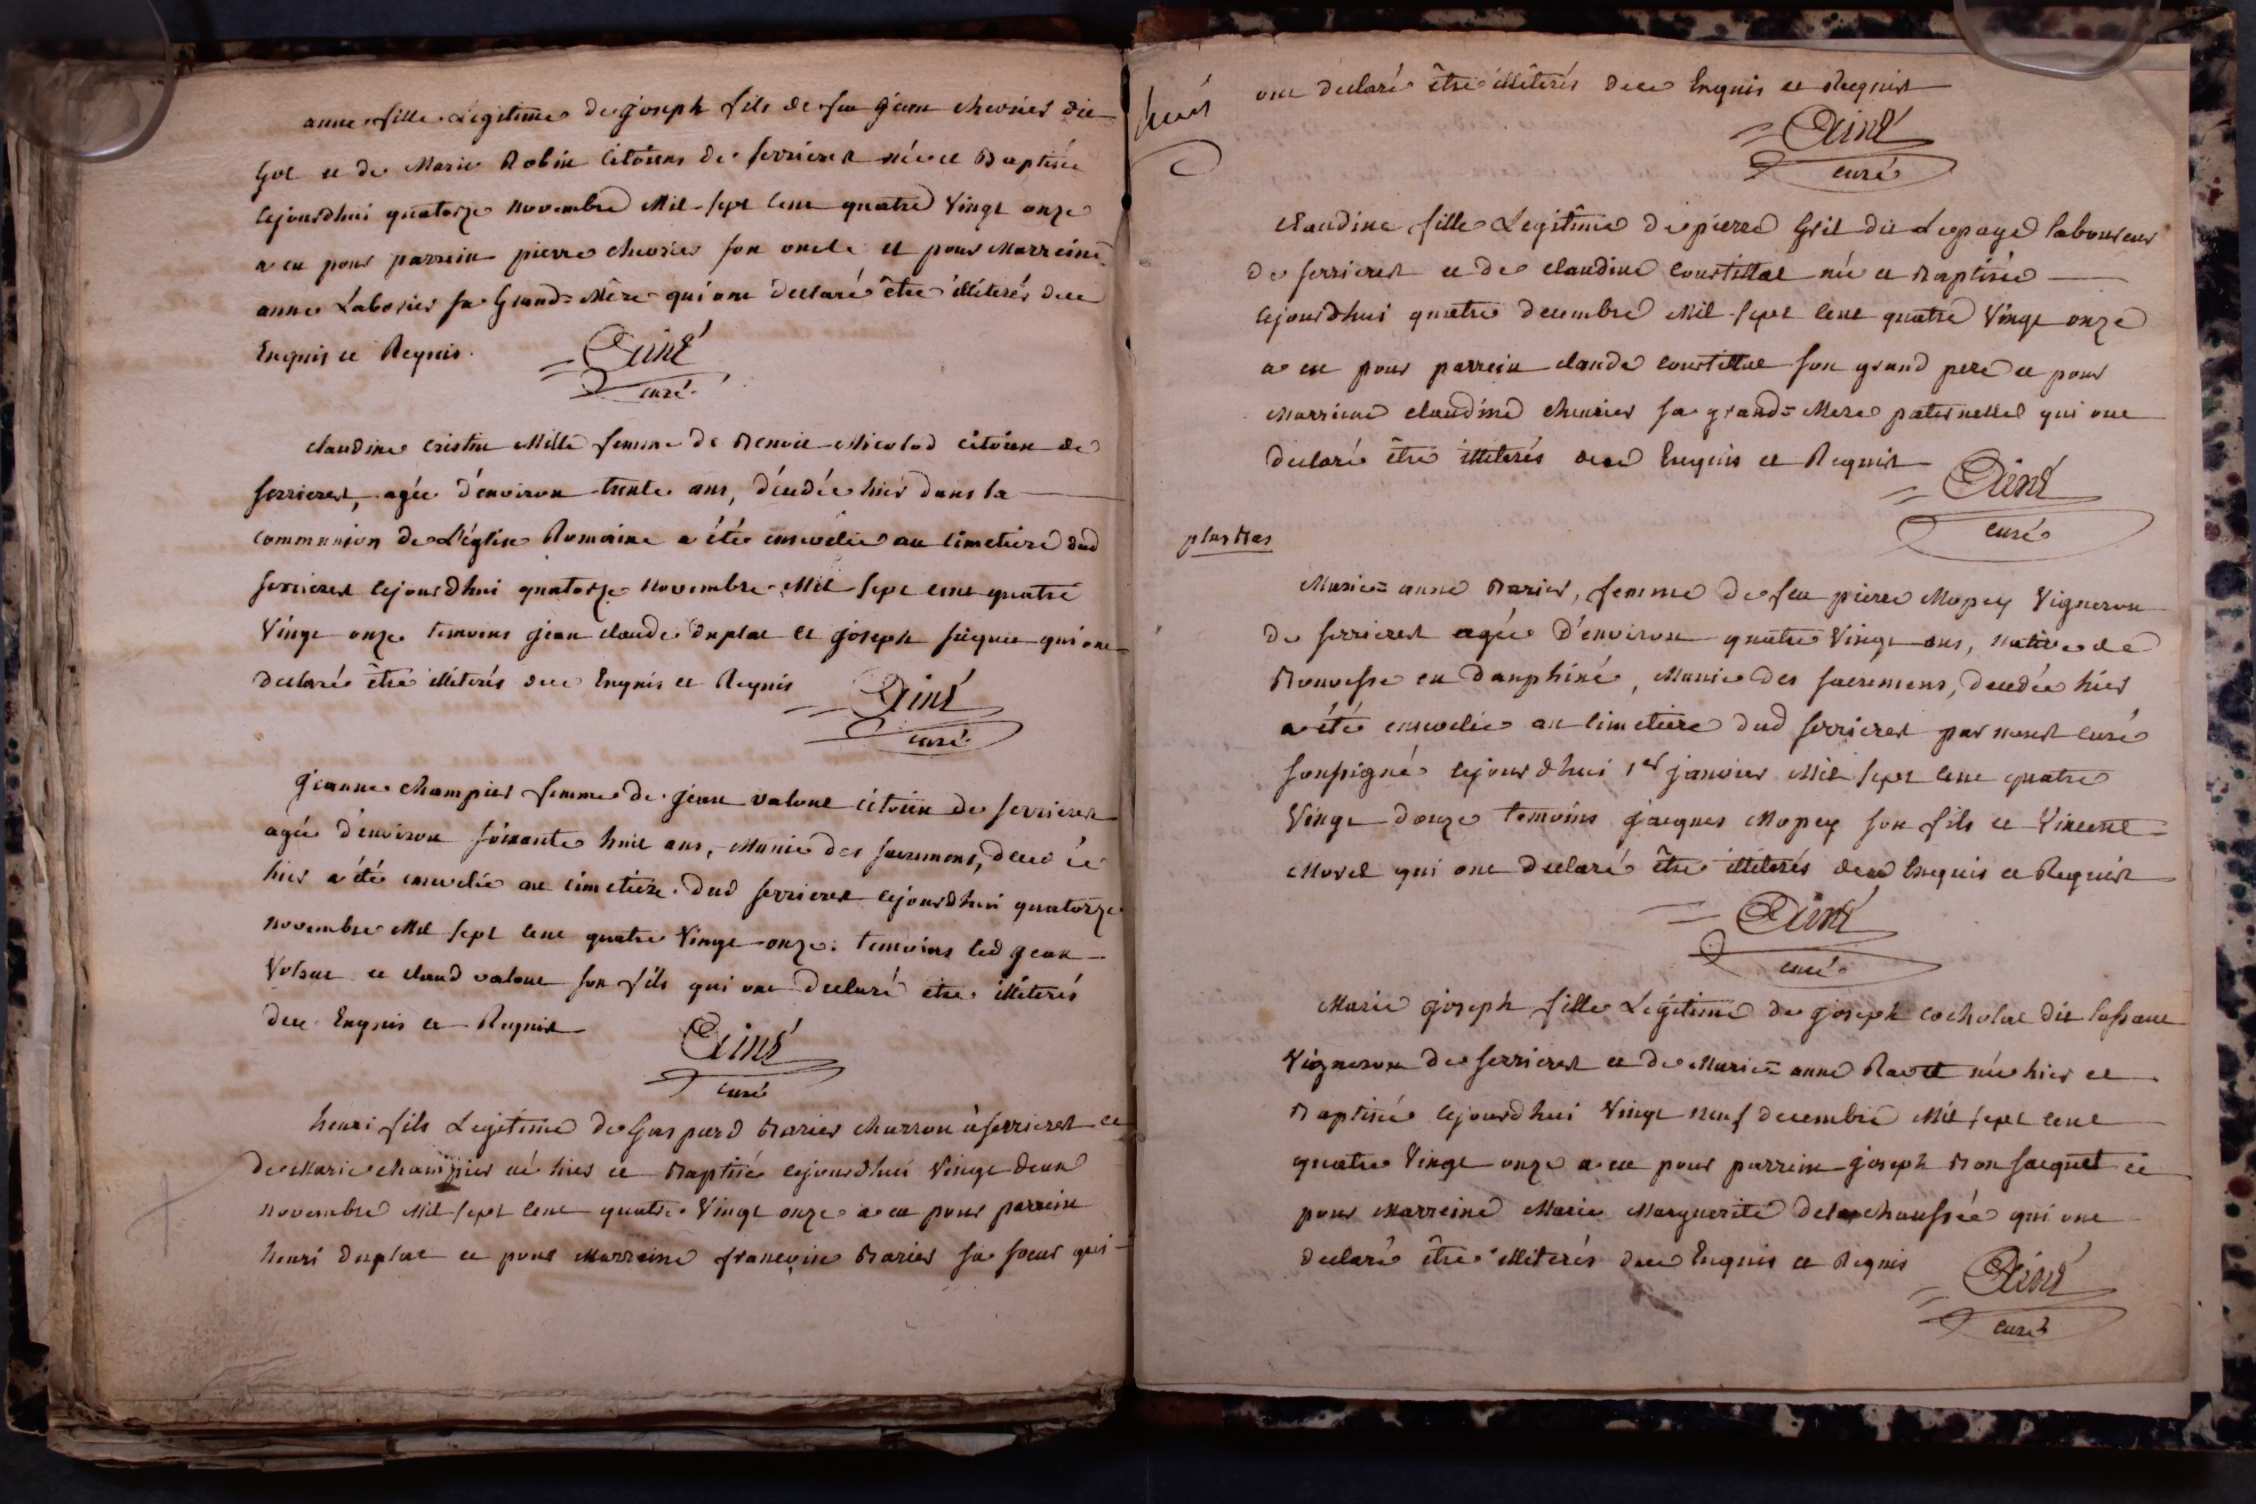 anne fille Légitime de joseph fils de feu jean chevrier dit
Gol et de Marie Robin citoiens de serrieres née et Baptisée
cejourdhui quatorze novembre Mil sept cent quatre Vingt onze
a eu pour parrein pierre chevrier son oncle et pour Marreine
anne Laborier sa Grand=Mère qui ont declaré être illiterés dece
Enquis et Requis.
Ainé
curé
claudine cristine Mille femme de Benoit Nicolod citoien de
serrieres, agée d'environ trente ans, décédée hier dans la
communion de L'église Romaine a été ensevelie au cimetiere dud
serrieres cejourdhui quatorze novembre Mil sept cent quatre
Vingt onze temoins jean claude duplat et joseph qui ont
declaré être illiterés dece Enquis et Requis
Ainé
curé
jeanne champier femme de jean valout citoien de serrieres
agée d'environ soixante huit ans, Munie des sacremens, decedée
hier a été ensevelie au cimetiere dud serrieres cejourdhui quatorze
novembre Mil sept cent quatre Vingt onze. temoins led jean
Valout et claud valout son fils qui ont declaré etre illiterés
dece Enquis et Requis
Ainé
curé
henri fils Legitime de Gaspard Barier charron à serrieres et
de Marie champier né hier et Baptisé cejourdhui Vingt deux
novembre Mil sept cent quatre Vingt onze a eu pour parrein
henri duplat et pour Marreine francoise Barier sa soeur qui
ont declaré être illiterés dece Enquis et Requis
Ainé
curé
claudine fille Legitime de pierre Gril dit Lepage laboureur
de serrieres et de claudine courtillat née et Baptisée
cejourdhui quatre decembre Mil sept cent quatre Vingt onze
a eu pour parrein claude courtillat son grand pere et pour
Marreine claudine chevrier sa grand=Mere paternelle qui ont
declaré être illiterés dece Enquis et Requis
Ainé
curé
plus bas
Marie=anne Barier, femme de feu pierre Mopey Vigneron
de serrieres agée d'environ quatre Vingt ans, native de
Bouvesse en Dauphiné, Munie des sacremens, decedée hier
a été ensevelie au cimetiere dud serrieres par nous curé
soussigné cejourdhui 1er janvier Mil sept cent quatre
Vingt douze temoins jacques Mopey son fils et Vincent
Morel qui ont declaré être illiterés dece Enquis et Requis
Ainé
curé
Marie joseph fille Legitime de joseph cocholat dit
Vigneron de serrieres et de Marie=anne Ravet née hier et
Baptisée cejourdhui Vingt neuf decembre Mil sept cent
quatre Vingt onze a eu pour parrein joseph Bon jacquet et
pour Marreine Marie Marguerite delachaussée qui ont
declaré être illiterés dece Enquis et Requis
Ainé
curé